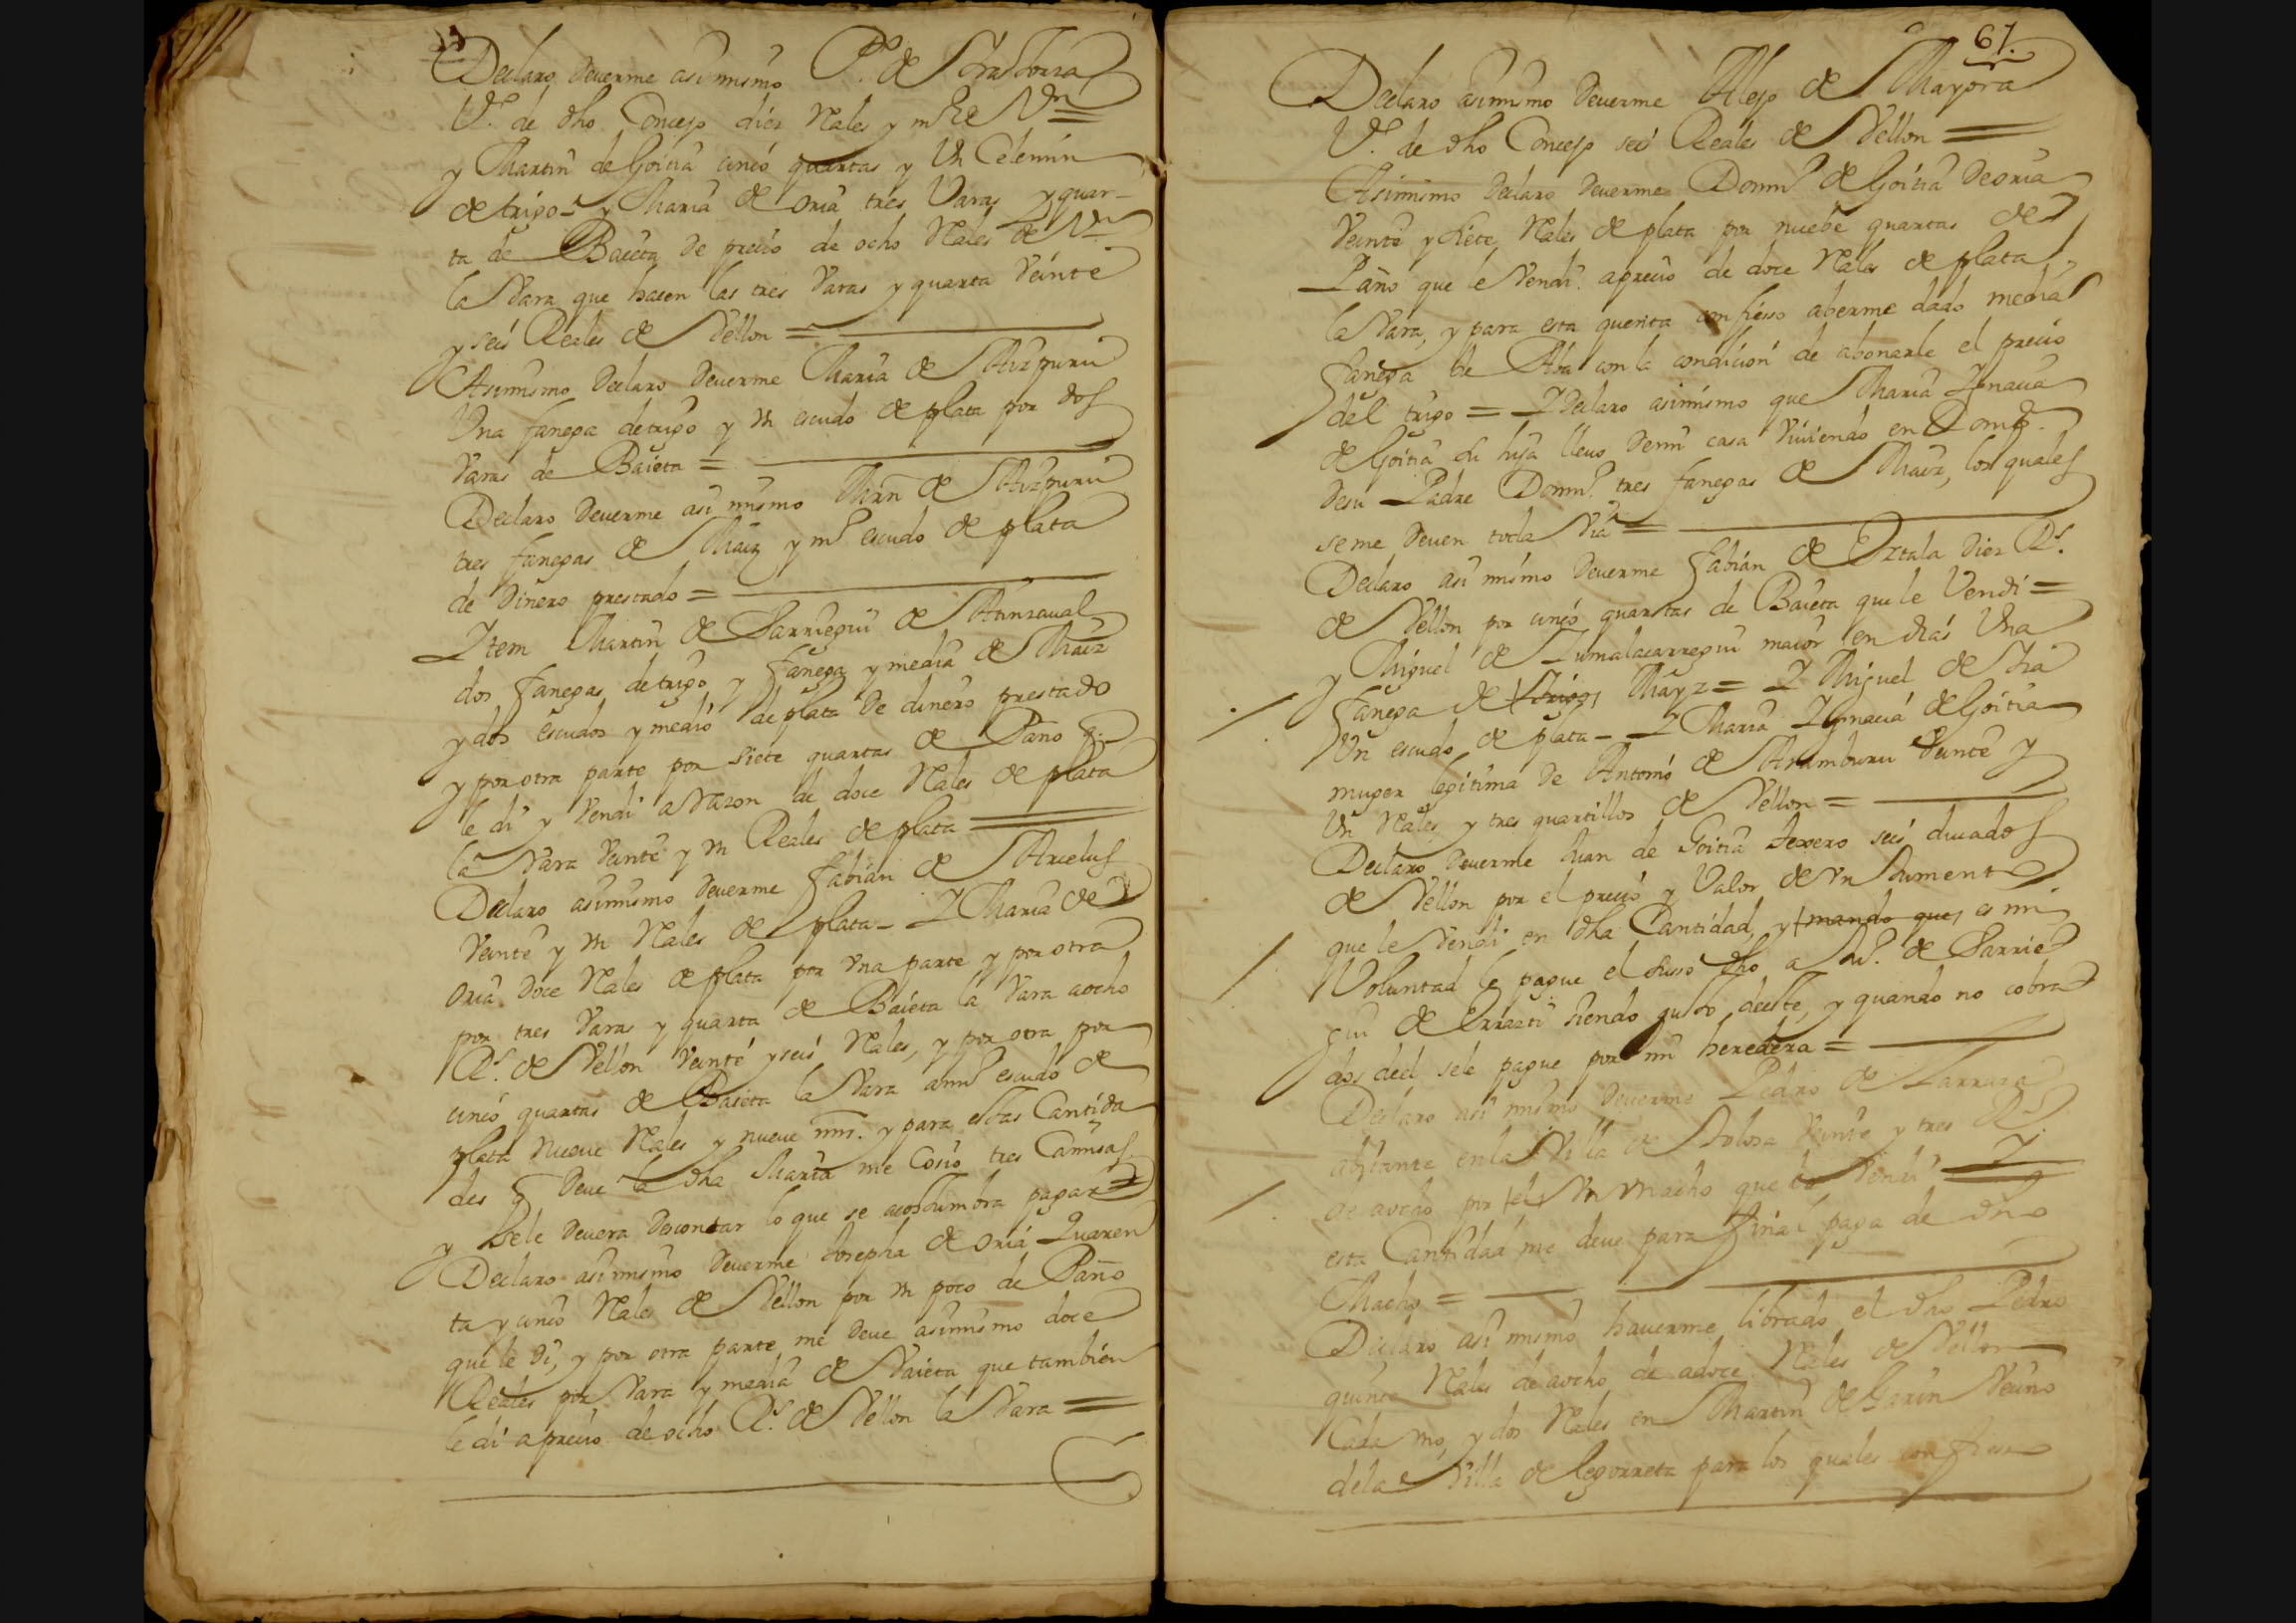 Declaro deuerme asimismo P.º de
V.º de dho Concejo diez Rales y mº de Vn
y Martin de Goitia cinco quartas y Vn Celemin
de trigo - y Maria de oria tres Varas y quar-
ta de Baieta de precio de ocho Rales de Vn
la Vara que hacen las tres Varas y quarta Veinte
y seis Reales de Vellon =
Asimismo declaro deuerme Maria de Aizpuru
Vna fanega de trigo y vn escudo de plata por dos
Varas de Baieta =
Declaro deuerme asi mismo Mrn de Aizpuru
tres fanegas de Maiz y mº escudo de plata
de dinero prestado =
Item Martin de Sarriegui de
dos fanegas de trigo y fanega y media de Maiz
y dos escudos y medio de plata de dinero prestado
y por otra parte por siete quartas de Paño q.
le di y Vendi a Razon de doce Rales de plata
la Vara Veinte y vn Reales de plata =
Declaro asimismo deuerme fabian de Arcelus
Veinte y vn Rales de plata - I Maria de
oria doce Rales de plata por vna parte y por otra
por tres Varas y quarta de Baieta la Vara a ocho
Rs. de Vellon Veinte y seis Rales, y por otra por
cinco quartas de Baieta la Vara a un escudo de
plata nueue Rales y nueue mrs. y para estas Cantida
des q deue la dha Maria me Cosio tres Camisas
y se le deuera descontar lo que se acostumbra pagar =
Declaro asi mismo deuerme Josepha de oria Quaren
ta y cinco Rales de Vellon por vn poco de Paño
que le di, y por otra parte me deue asimismo doce
Reales por Vara y media de Vaieta que tambien
le di a precio de ocho Rs. de Vellon la Vara =
67.
Declaro asimismo deuerme Alejo de Mayora
V.º de dho Concejo seis Reales de Vellon =
Asimismo declaro deuerme Domº de Goitia de oria
Veinte y siete Rales de plata por nuebe quartas de
Paño que le Vendi a precio de doce Rales de plata
la Vara, y para esta quenta confiesso aberme dado media
fanega de Aba con la condicion de abonarle el precio
del trigo = I declaro asimismo que Maria Ignacia
de Goitia su hija lleuo de mi casa Viuiendo en
de su Padre Domº tres fanegas de Maiz, los quales
se me deuen toda Via =
Declaro asi mismo deuerme fabian de Oztala diez Rs.
de Vellon por cinco quartas de Baieta que le Vendi =
y Miguel de Zumalacarregui maior en dias Vna
fanega de trigo, Mayz = I Miguel de
Vn escudo de plata - I Maria Ignacia de Goitia
muger legitima de Antonio de Aramburu Veinte y
Vn Rales y tres quartillos de Vellon =
Declaro deuerme Juan de Goitia texero seis ducados
de Vellon por el precio y Valor de vn Jumento
que le Vendi en dha Cantidad, y mando que, es mi
Voluntad le pague el susso dho a de Sarrie
gui de Errazti siendo gusto deeste, y quando no cobra
dos deel se le pague por mi heredera =
Declaro asi mismo deuerme Pedro de Larraza
abitante en la Villa de tolosa Veinte y tres Rs.
de aocho por el vn macho que le Vendi = I
esta Cantidad me deue para final paga de dho
Macho =
Declaro asi mismo hauerme librado el dho Pedro
quince Rales de aocho de adoce Rales de Vellon
Cada vno, y dos Rales en Martin de Garin Vecino
dela Villa de legorreta para los quales confiesso